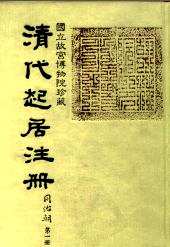 國立故宮博物院珍藏
清代起居注冊
同治朝 第一冊